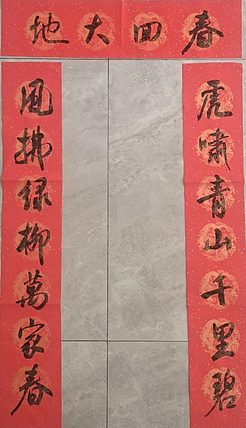 春回大地
虎啸青山千里碧
風拂绿柳萬家春